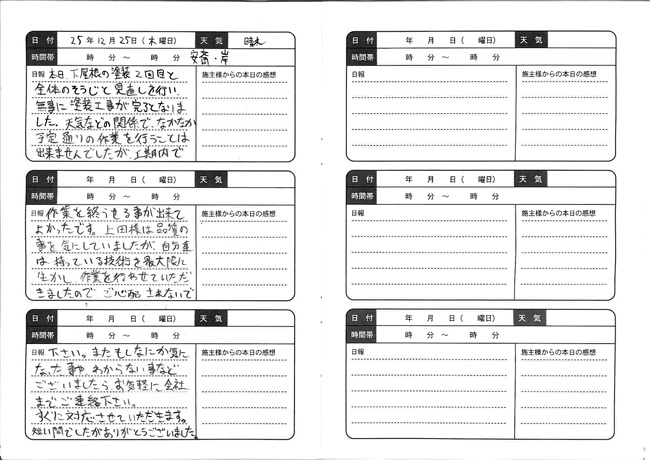 日付 25年 12月 25日(木曜日) 天気 晴れ
時間帯 時 分～ 時 分 安斎・岸
日報 本日、下屋根の塗装2回目と
全体のそうじと見直しを行い
無事に塗装工事が完了となりま
した。天気などの関係で、なかなか
予定通りの作業を行うことは
出来ませんでしたが、工期内で
施主様からの本日の感想
日付 年 月 日( 曜日) 天気
時間帯 時 分～ 時 分
日報 作業を終うせる事が出来て
よかったです。上田様は品質の
事を気にしていましたが、自分達
は、持っている技術を最大限に
生かし、作業を行わせていただ
きましたので、ご心配されないで
施主様からの本日の感想
日付 年 月 日( 曜日) 天気
時間帯 時 分～ 時 分
日報 下さい。またもしなにか気に
なった事や、わからない事など
ございましたら、お気軽に会社
までご連絡下さい。
すぐに対応させていただきます。
短い間でしたがありがとうございました。
施主様からの本日の感想
日付 年 月 日( 曜日) 天気
時間帯 時 分～ 時 分
日報
施主様からの本日の感想
日付 年 月 日( 曜日) 天気
時間帯 時 分～ 時 分
日報
施主様からの本日の感想
日付 年 月 日( 曜日) 天気
時間帯 時 分～ 時 分
日報
施主様からの本日の感想